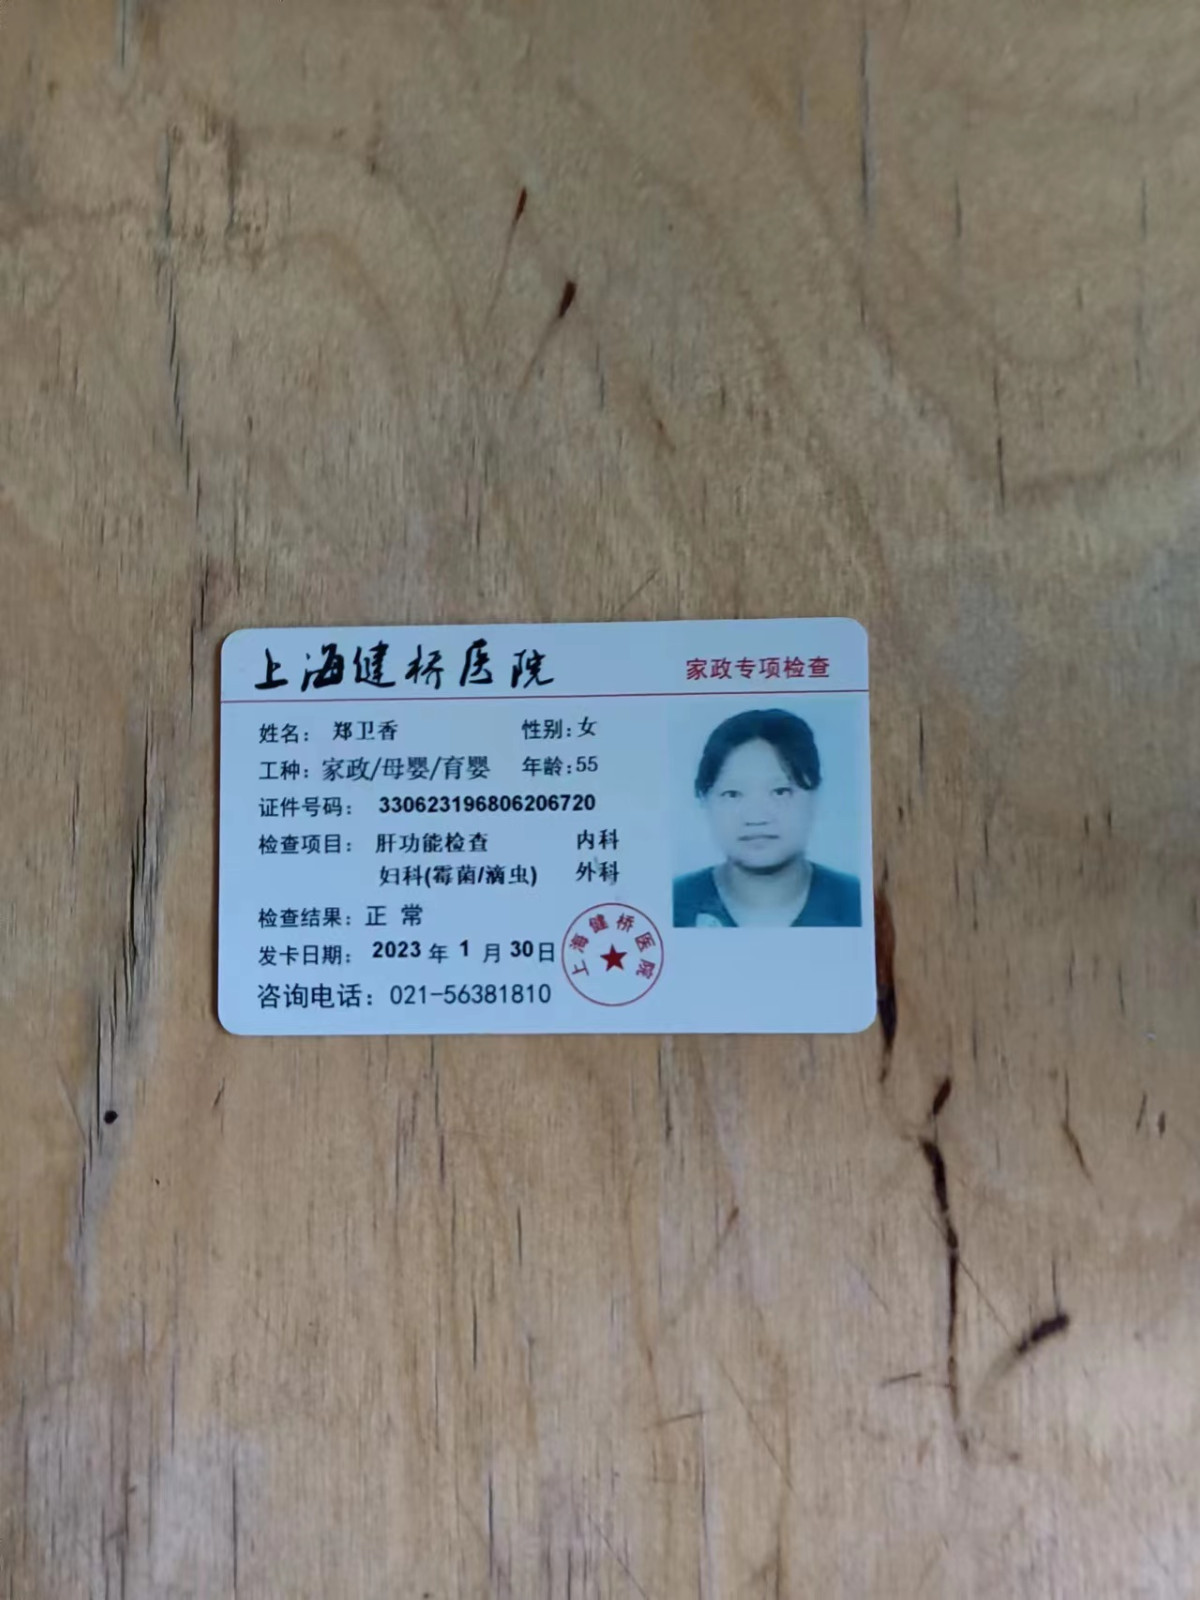 上海健桥医院 家政专项检查
姓名： 郑卫香 性别：女
工种：家政/母婴/育婴 年龄：55
证件号码： 330623196806206720
检查项目： 肝功能检查 内科
妇科(霉菌/滴虫) 外科
检查结果：正 常
发卡日期： 2023 年 1 月 30 日
咨询电话：021-56381810
上海健桥医院